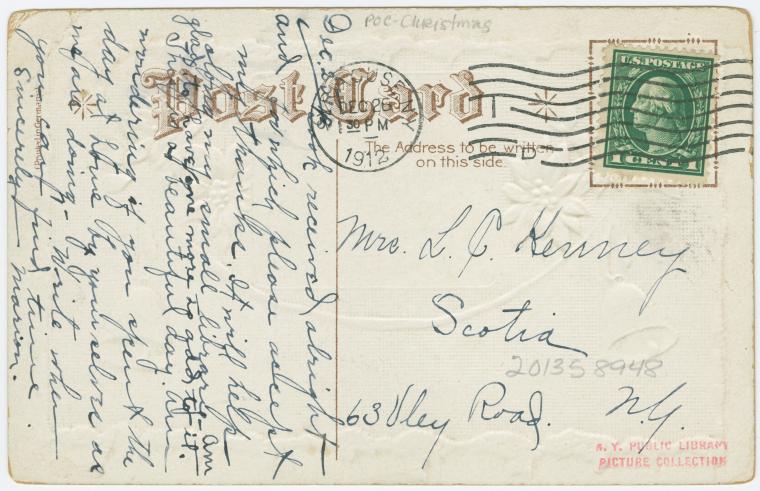 POC-Christmas
Post Card
The Address to be written
on this side.
DEC 26
30 PM
1912
U.S. POSTAGE
1 CENT 1
Dec. 25
Book received alright
and for which please accept
my thanks. It will help
along my small library - am
glad to have one more to add to it.
This is a beautiful day. Am
wondering if you spent the
day at home by yourselves as
we are doing - Write when
you can find time
Sincerely Marion.
Mrs. L. C. Kenney
Scotia
63 Vley Road. N.Y.
201358948
N. Y. PUBLIC LIBRARY
PICTURE COLLECTION